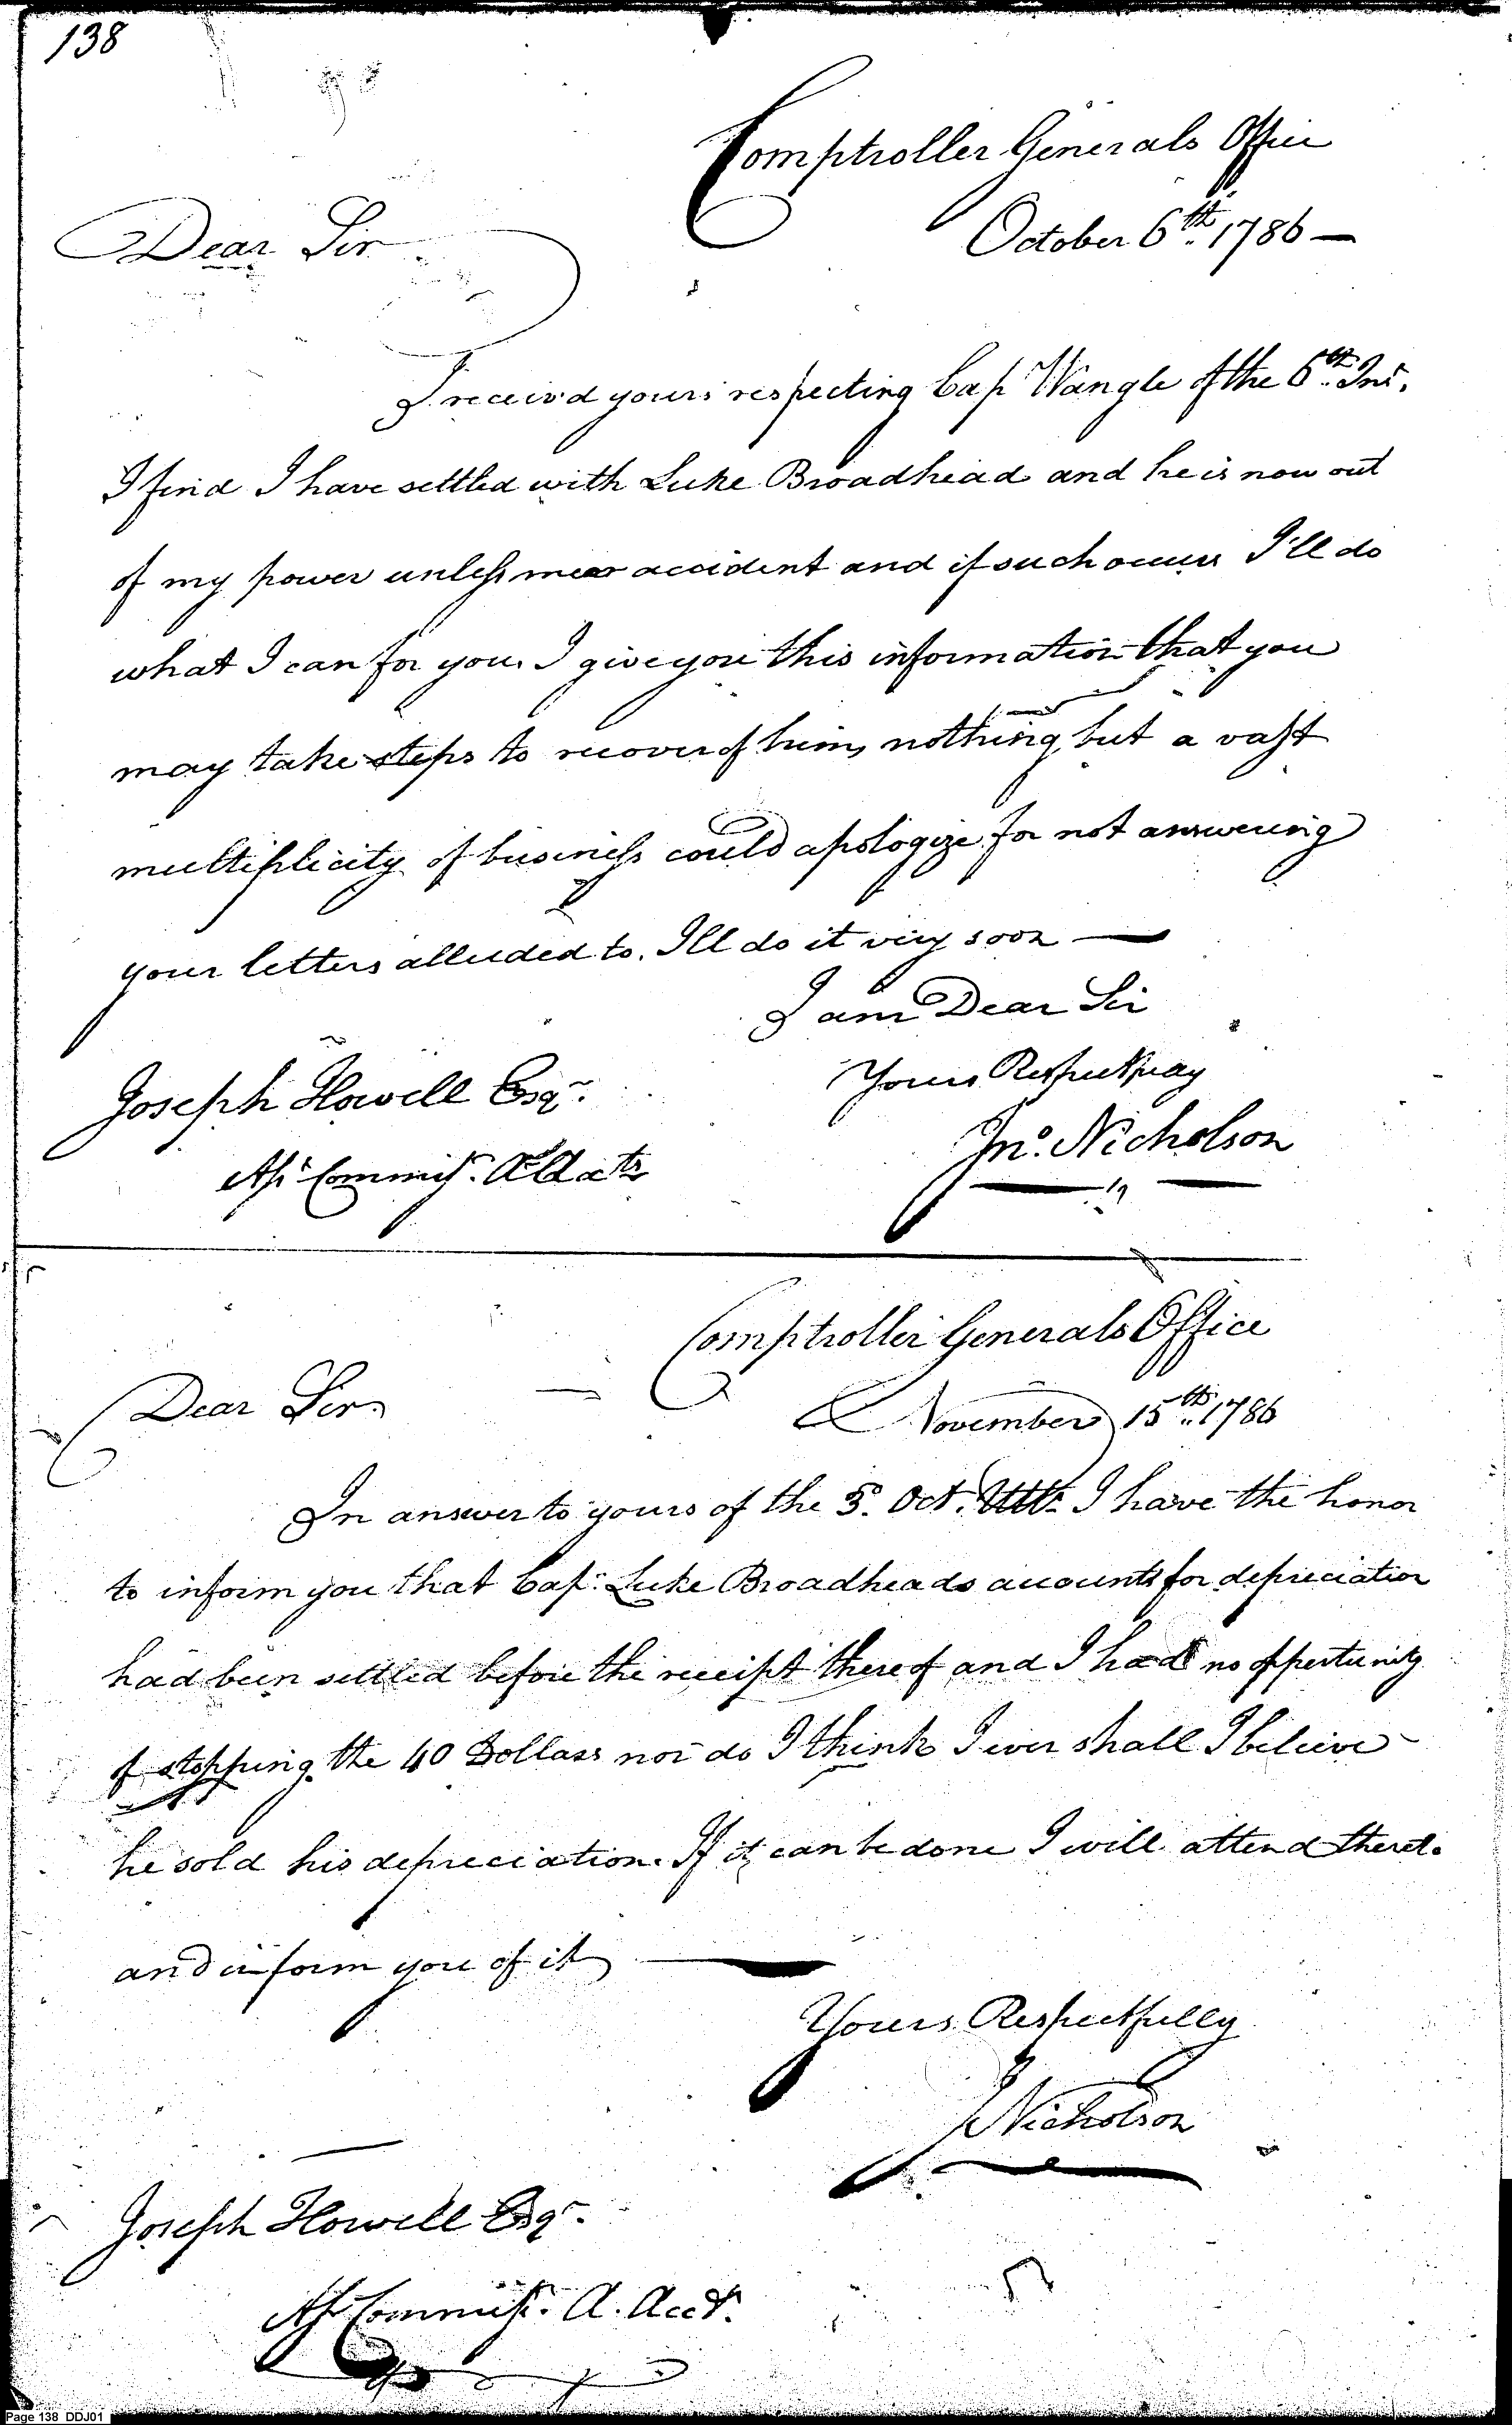 138
Comptroller Generals Office
October 6th. 1786 —
Dear Sir
I receivd yours respecting Cap Wangle of the 6th. Inst.
I find I have settled with Luke Broadhead and he is now out
of my power unless mear accident and if such occurs I'll do
what I can for you. I give you this information that you
may take steps to recover of him, nothing but a vast
multiplicity of business could apologize for not answering
your letters alluded to. Ill do it very soon —
I am Dear Sir
Yours Respectfully
Jno. Nicholson
Joseph Howell Esqr.
Asst Commisr.
Comptroller Generals Office
November 15th. 1786
Dear Sir
In answer to yours of the 5. Oct. I have the honor
to inform you that Cap. Luke Broadheads accounts for depreciation
had been settled before the receipt thereof and I had no oppertunity
of stopping the 40 Dollars nor do I think I ever shall I believe
he sold his depreciation. If it can be done I will attend thereto
and inform you of it
Yours Respectfully
J Nicholson
Joseph Howell Esqr.
Ast Commisr. A. Acct.
Page 138 DDJ01